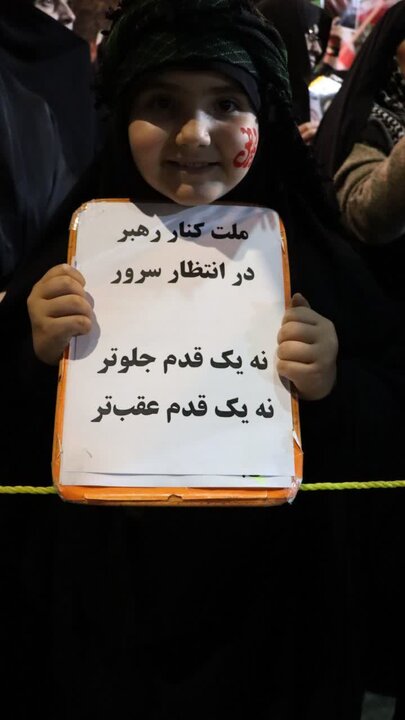 ملت کنار رهبر
در انتظار سرور
نه یک قدم جلوتر
نه یک قدم عقب‌تر